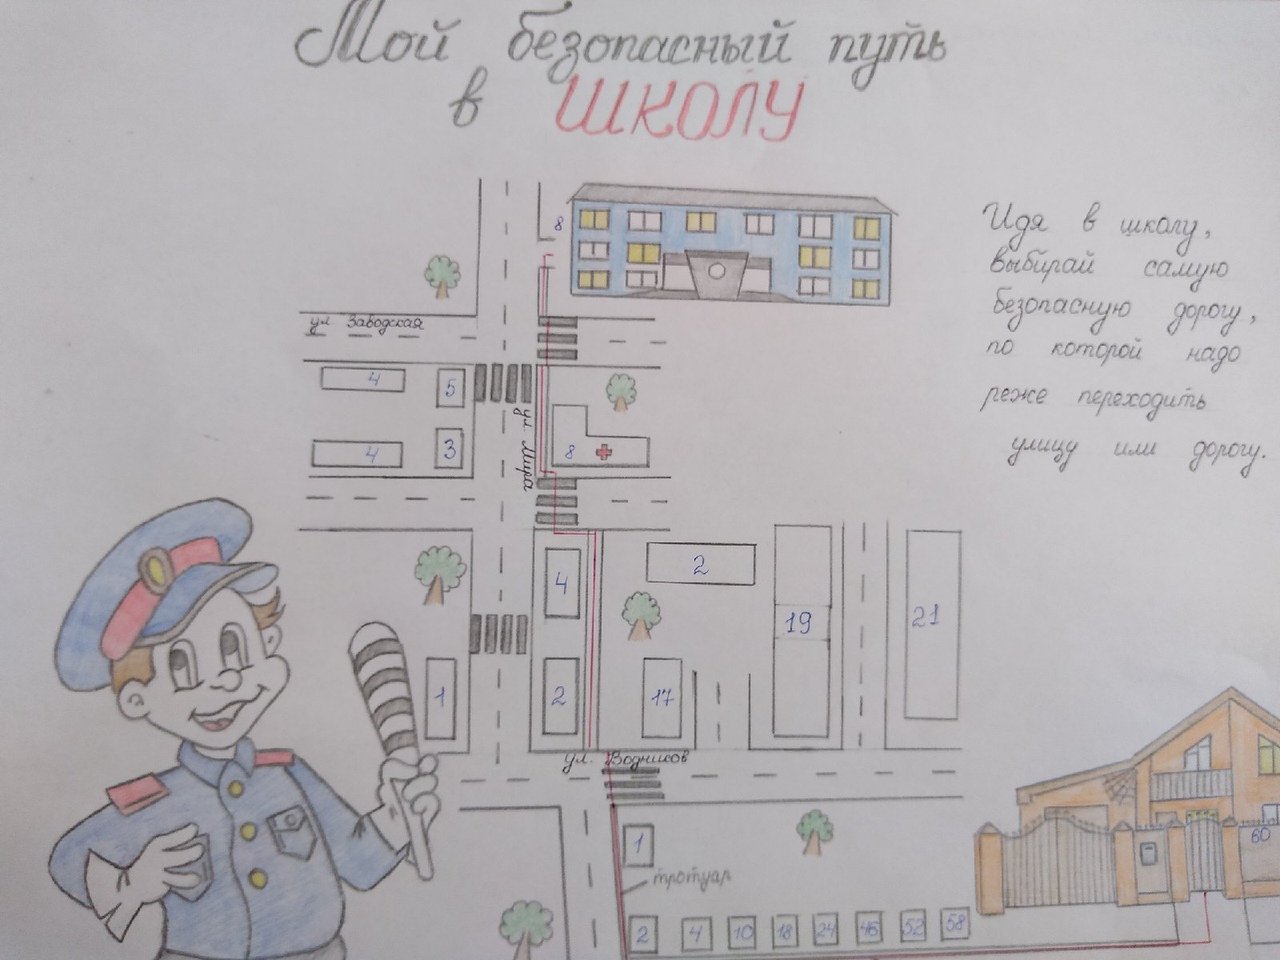 Мой безопасный путь
в ШКОЛУ
Идя в школу,
выбирай самую
безопасную дорогу,
по которой надо
реже переходить
улицу или дорогу.
8
ул Заводская
4
5
4
3
ул. Мира
8
4
2
19
21
1
2
17
ул. Водников
1
тротуар
2
4
10
18
24
46
52
58
60